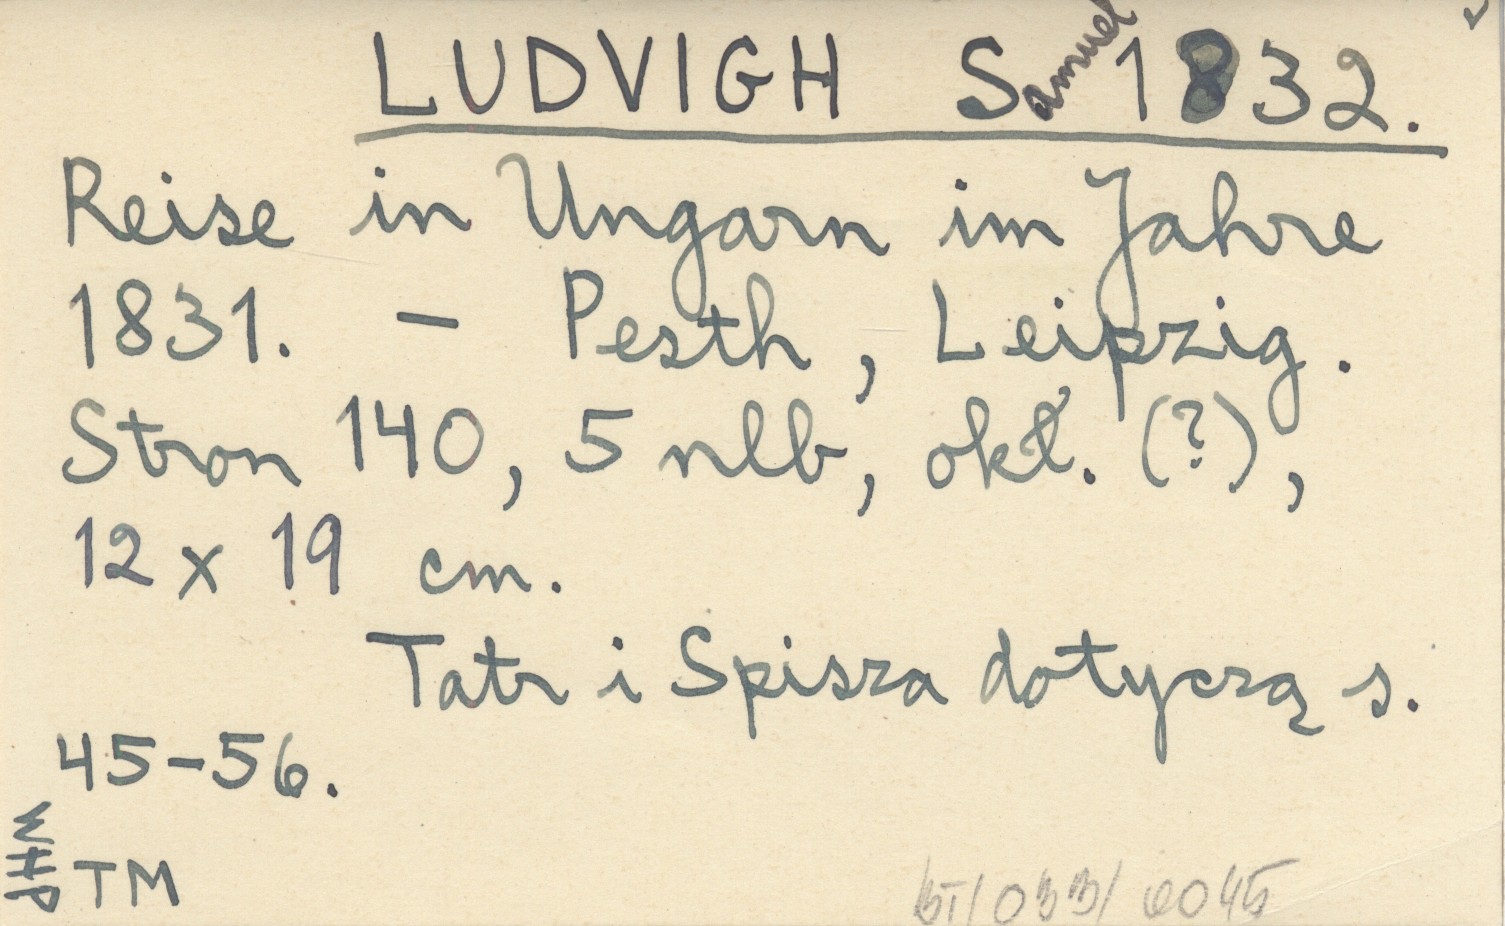 LUDVIGH Samuel 1832.
Reise in Ungarn im Jahre
1831. – Pesth, Leipzig.
Stron 140, 5 nlb, okł. (?),
12 x 19 cm.
Tatr i Spisza dotyczą s.
45-56.
WHP
TM
BT/033/0045